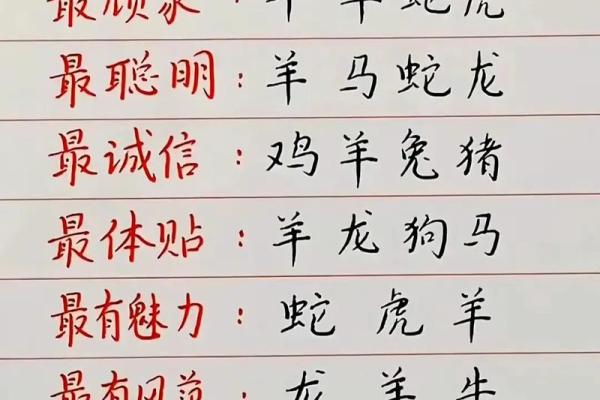 最顾家：牛羊蛇虎
最聪明：羊马蛇龙
最诚信：鸡羊兔猪
最体贴：羊龙狗马
最有魅力：蛇虎羊
最有风范：龙羊牛